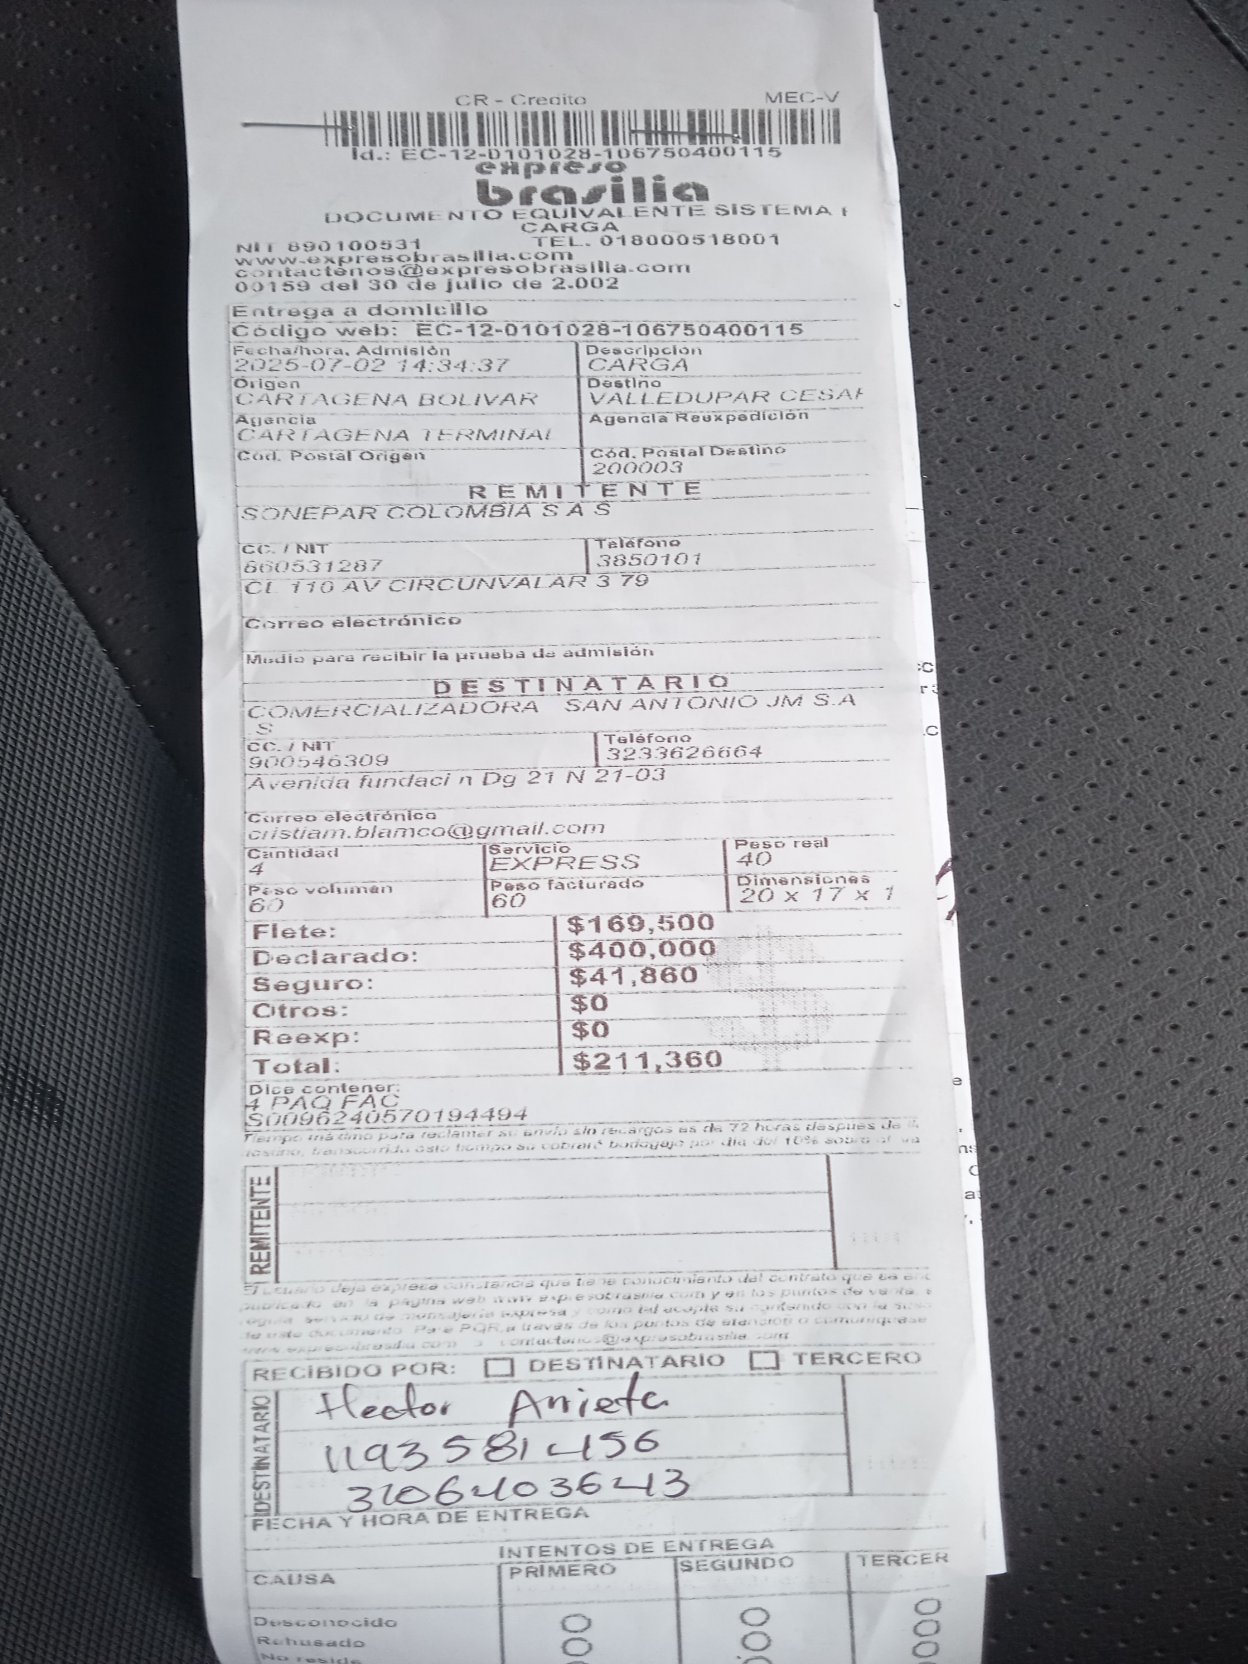 CR - Credito MEC-V
Id.: EC-12-0101028-106750400115
expreso
brasilia
DOCUMENTO EQUIVALENTE SISTEMA
CARGA
NIT 890100531 TEL. 018000518001
www.expresobrasilia.com
contactenos@expresobrasilia.com
00159 del 30 de julio de 2.002
Entrega a domicilio
Código web: EC-12-0101028-106750400115
Fecha/hora. Admisión Descripción
2025-07-02 14:34:37 CARGA
Origen Destino
CARTAGENA BOLIVAR VALLEDUPAR CESAR
Agencia Agencia Reexpedición
CARTAGENA TERMINAL
Cod. Postal Origen Cód. Postal Destino
200003
REMITENTE
SONEPAR COLOMBIA S A S
CC. / NIT Teléfono
860531287 3850101
CL 110 AV CIRCUNVALAR 3 79
Correo electrónico
Medio para recibir la prueba de admisión
DESTINATARIO
COMERCIALIZADORA SAN ANTONIO JM S.A
S
CC. / NIT Teléfono
900546309 3233626664
Avenida fundaci n Dg 21 N 21-03
Correo electrónico
cristiam.blamco@gmail.com
Cantidad Servicio Peso real
4 EXPRESS 40
Peso volumen Peso facturado Dimensiones
60 60 20 x 17 x 1
Flete: $169,500
Declarado: $400,000
Seguro: $41,860
Otros: $0
Reexp: $0
Total: $211,360
Dice contener:
4 PAQ FAC
S0096240570194494
Tiempo máximo para reclamar su envío sin recargos es de 72 horas después de
transcurrido este tiempo se cobrará bodegaje por día del 10% sobre el
REMITENTE
El usuario deja expresa constancia que tiene conocimiento del contrato que se
publicado en la página web www.expresobrasilia.com y en los puntos de venta,
servicio de mensajería expresa y como tal acepta su contenido con la
este documento. Para PQR a través de los puntos de atención o comuníquese
contactenos@expresobrasilia.com
RECIBIDO POR: DESTINATARIO TERCERO
DESTINATARIO
Hector Arrieta
1193581456
3106403643
FECHA Y HORA DE ENTREGA
INTENTOS DE ENTREGA
CAUSA PRIMERO SEGUNDO TERCER
Desconocido
Rehusado
No reside